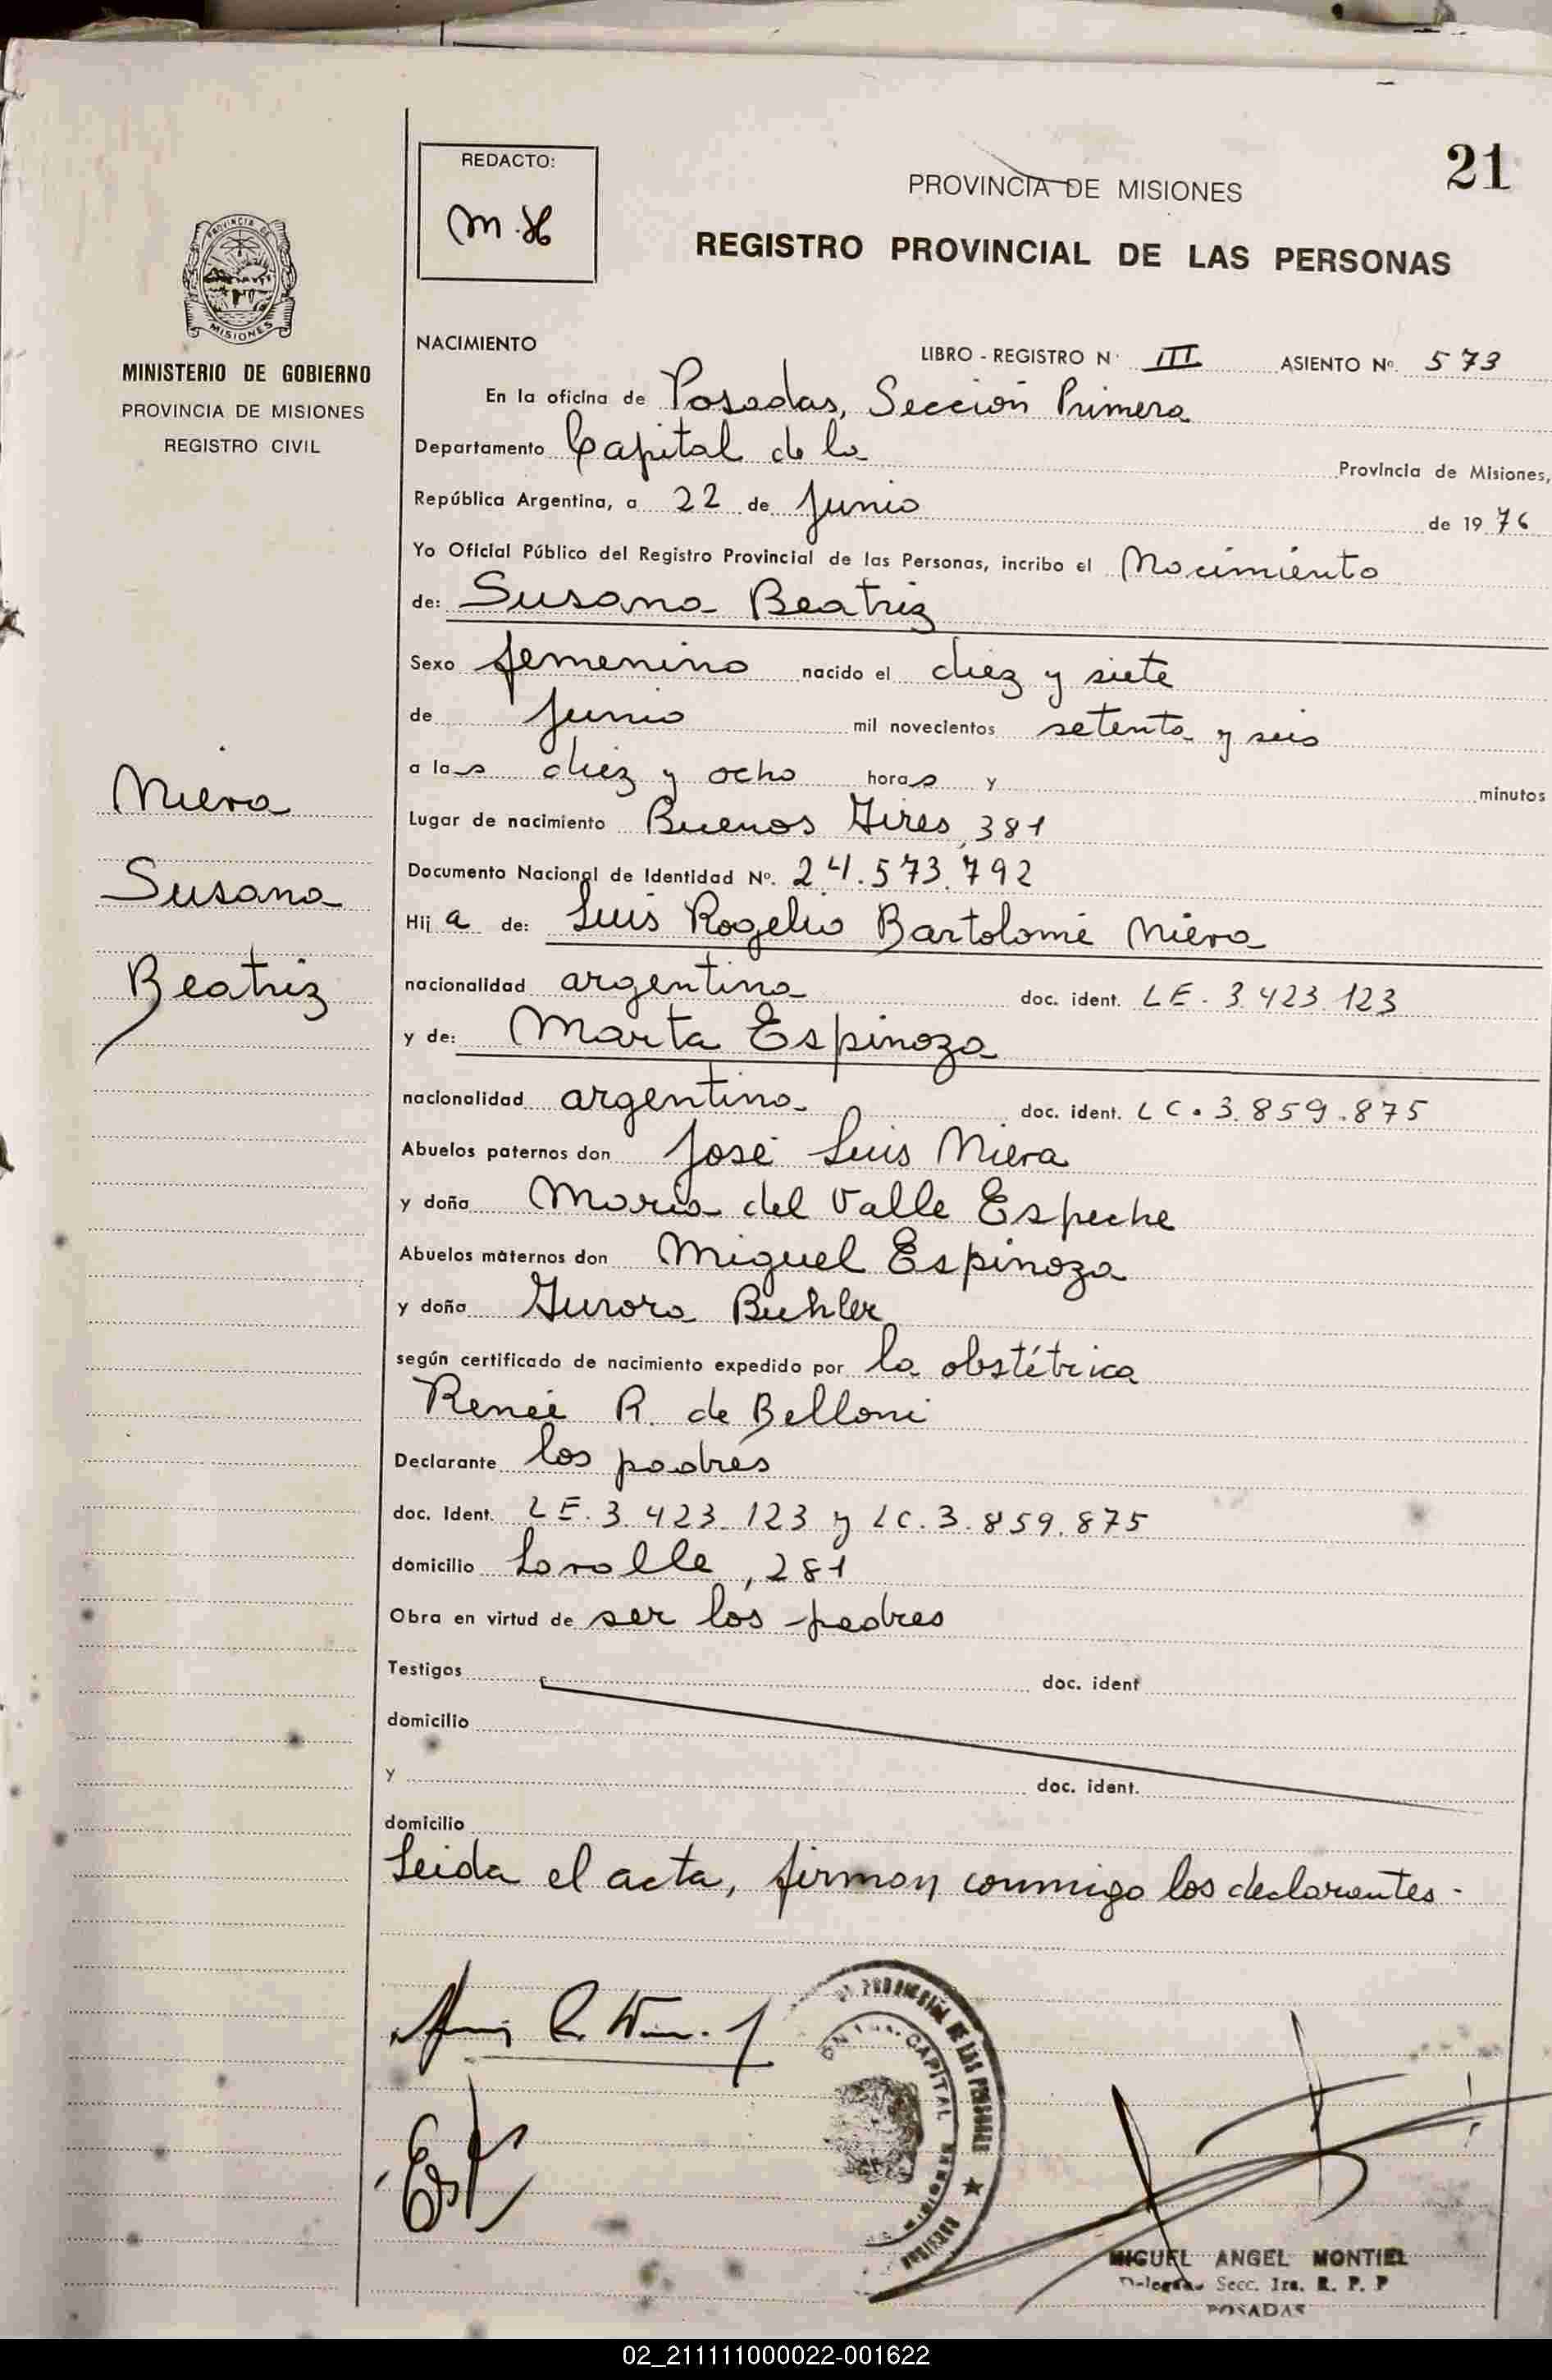 21
REDACTO:
M.H
PROVINCIA DE MISIONES
REGISTRO PROVINCIAL DE LAS PERSONAS
PROVINCIA DE
MISIONES
MINISTERIO DE GOBIERNO
PROVINCIA DE MISIONES
REGISTRO CIVIL
Niera
Susana
Beatriz
NACIMIENTO LIBRO - REGISTRO Nº III ASIENTO Nº 573
En la oficina de Posadas, Sección Primera
Departamento Capital de la Provincia de Misiones,
República Argentina, a 22 de Junio de 1976
Yo Oficial Público del Registro Provincial de las Personas, incribo el Nacimiento
de: Susana Beatriz
Sexo femenino nacido el diez y siete
de Junio mil novecientos setenta y seis
a las diez y ocho horas y minutos
Lugar de nacimiento Buenos Aires, 381
Documento Nacional de Identidad Nº. 24.573.792
Hija de: Luis Rogelio Bartolomé Niera
nacionalidad argentina doc. ident. LE. 3.423.123
y de: Marta Espinoza
nacionalidad argentina doc. ident. LC. 3.859.875
Abuelos paternos don José Luis Niera
y doña María del Valle Espeche
Abuelos maternos don Miguel Espinoza
y doña Aurora Buhler
según certificado de nacimiento expedido por la obstétrica
Renée R. de Belloni
Declarante los padres
doc. Ident. LE. 3.423.123 y LC. 3.859.875
domicilio Lavalle, 281
Obra en virtud de ser los padres
Testigos doc. ident
domicilio
y doc. ident.
domicilio
Leida el acta, firman conmigo los declarantes.-
PROVINCIAL DE LAS PERSONAS
CAPITAL
MIGUEL ANGEL MONTIEL
Delegado Secc. 1ra. R. P. P
POSADAS
02_211111000022-001622